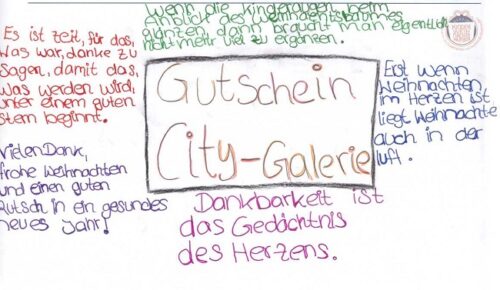 Wenn die Kinderaugen beim
Anblick des Weihnachtsbaumes
glänzen, dann braucht man eigentlich
nicht mehr viel zu ergänzen.
Es ist zeit, für das,
Was war, danke zu
Sagen, damit das,
Was werden wird,
unter einem guten
Stern beginnt.
Gutschein
City-Galerie
Erst wenn
Weihnachten
im Herzen ist
liegt Weihnachte
auch in der
luft.
Vielen Dank,
frohe Weihnachten
und einen guten
Rutsch in ein gesundes
neues Jahr!
Dankbarkeit ist
das Gedächtnis
des Herzens.